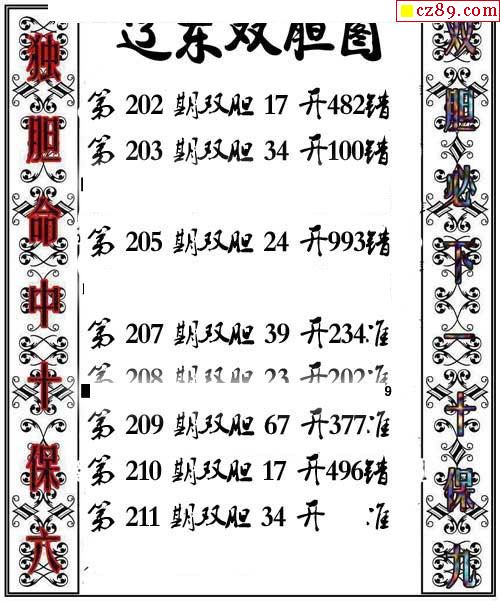 cz89.com
辽东双胆图
独胆命中十保六
第 202 期双胆 17 开482错
第 203 期双胆 34 开100错
第 205 期双胆 24 开993错
第 207 期双胆 39 开234准
第 208 期双胆 23 开202准
9
第 209 期双胆 67 开377准
第 210 期双胆 17 开496错
第 211 期双胆 34 开 准
双胆必下一十保九